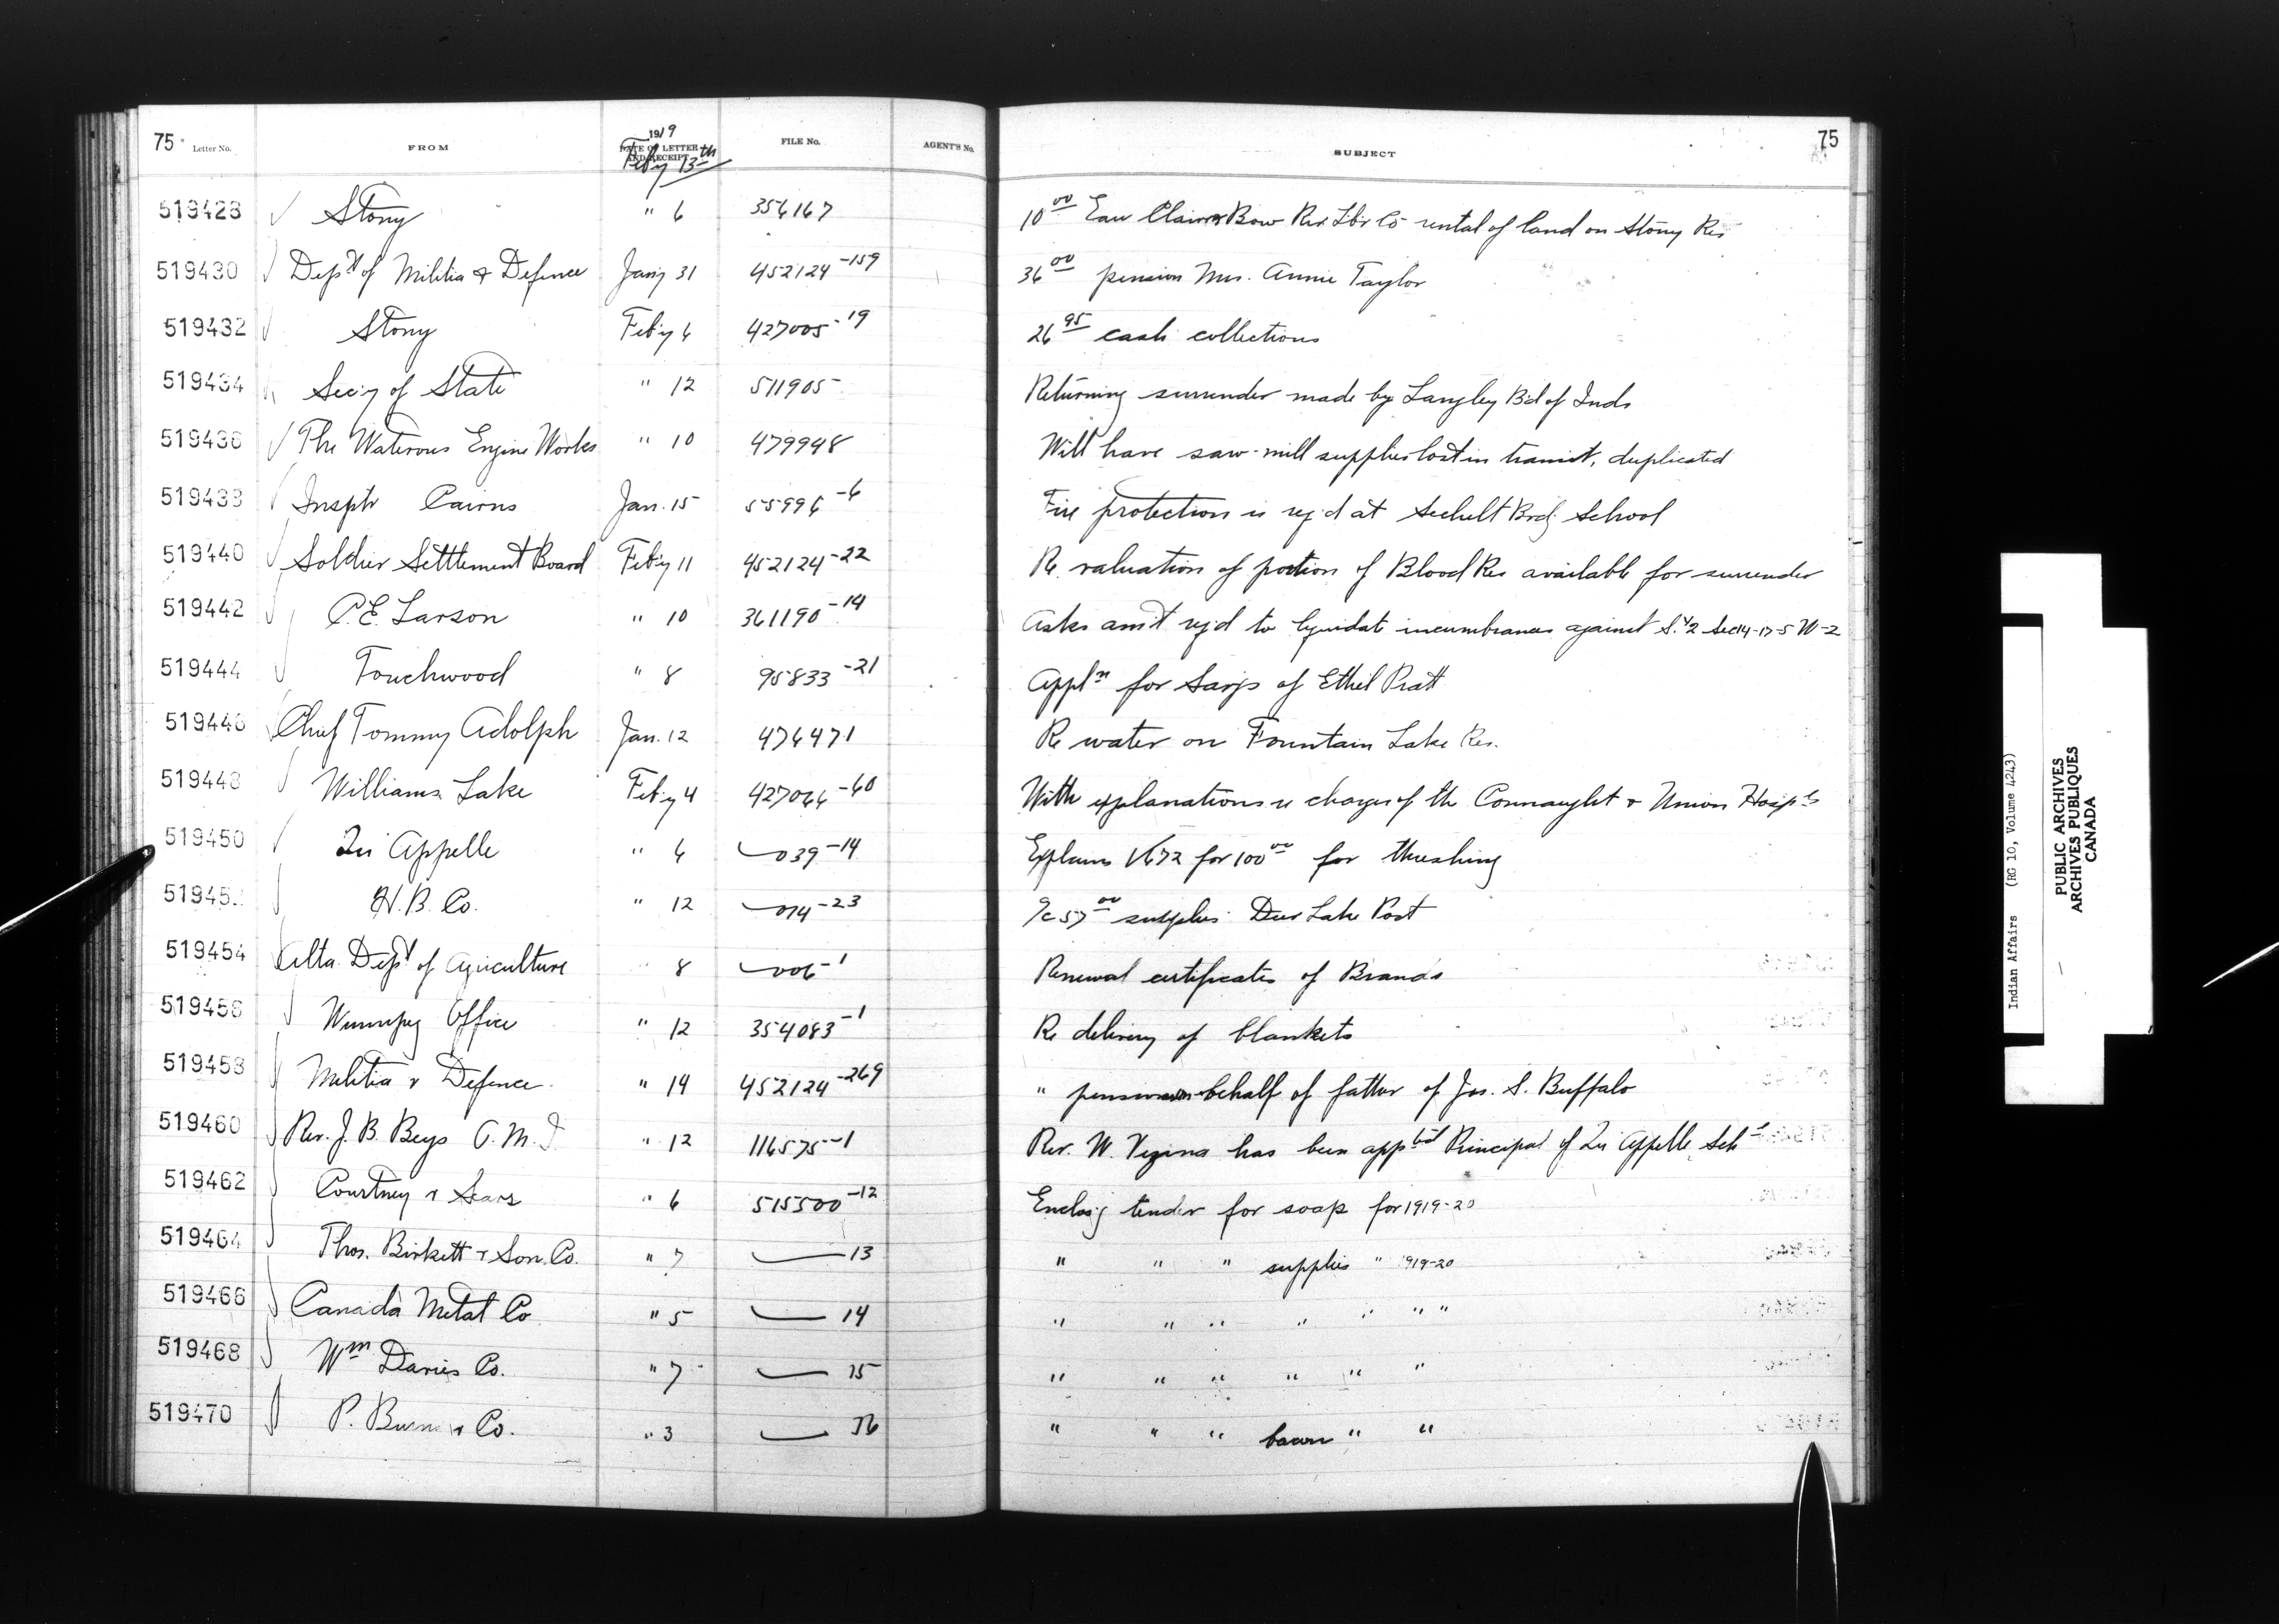 75 Letter No. FROM 1919 DATE OF LETTER AND RECEIPT Feby 13th FILE No. AGENT'S No. SUBJECT 75
519428 Stony " 6 356167 10 00 Eau Claire Bow Riv. Lbr Co rental of land on Stony Res
519430 Dept of Militia & Defence Jany 31 452124-159 36 00 pension Mrs. Annie Taylor
519432 Stony Feby 6 427005-19 26 95 cash collections
519434 Secy of State " 12 511905 Returning surrender made by Langley Bd of Inds
519436 The Waterous Engine Works " 10 479948 Will have saw-mill supplies lost in transit, duplicated
519438 Insptr Cairns Jan. 15 55996-6 Fire protection is reqd at Sechelt Brdg School
519440 Soldier Settlement Board Feby 11 452124-22 Re valuation of portion of Blood Res available for surrender
519442 P.E. Larson " 10 361190-14 Asks amt reqd to liquidate incumbrances against S.1/2 Sec 14-17-5 W-2
519444 Touchwood " 8 95833-21 Appln for Savgs of Ethel Pratt
519446 Chief Tommy Adolph Jan. 12 476471 Re water on Fountain Lake Res.
519448 Williams Lake Feby 4 427064-60 With explanations re charges of the Connaught & Union Hospls
519450 Qu Appelle " 6 039-14 Explains 1672 for 100 00 for threshing
51945 H.B. Co. " 12 014-23 a/c 57 00 supplies Deer Lake Post
519454 Alta Dept of Agriculture " 8 006-1 Renewal certificates of Brands
519456 Winnipeg Office " 12 354083-1 Re delivery of blankets
519458 Militia & Defence " 14 452124-269 " pension on behalf of father of Jos. S. Buffalo
519460 Rev. J. B. Beys O.M.I. " 12 116575-1 Rev. W. Vezina has been apptd Principal of Qu Appelle Schl
519462 Courtney & Sears " 6 515500-12 Enclosg tender for soap for 1919-20
519464 Thos. Birkett & Son Co. " 7 — 13 " " " supplies " 1919-20
519466 Canada Metal Co " 5 — 14 " " " " " " "
519468 Wm Davies Co. " 7 — 15 " " " " " "
519470 P. Burns & Co. " 3 — 36 " " " bacon " "
Indian Affairs (RG 10, Volume 4243)
PUBLIC ARCHIVES
ARCHIVES PUBLIQUES
CANADA